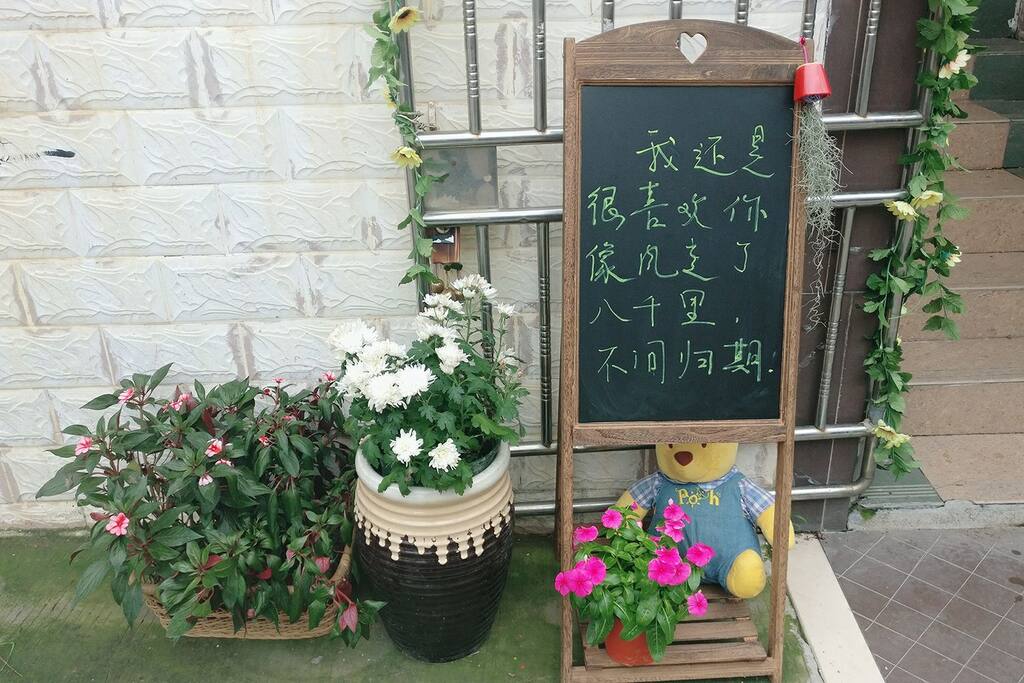 我还是
很喜欢你
像风走了
八千里,
不问归期.
Pooh